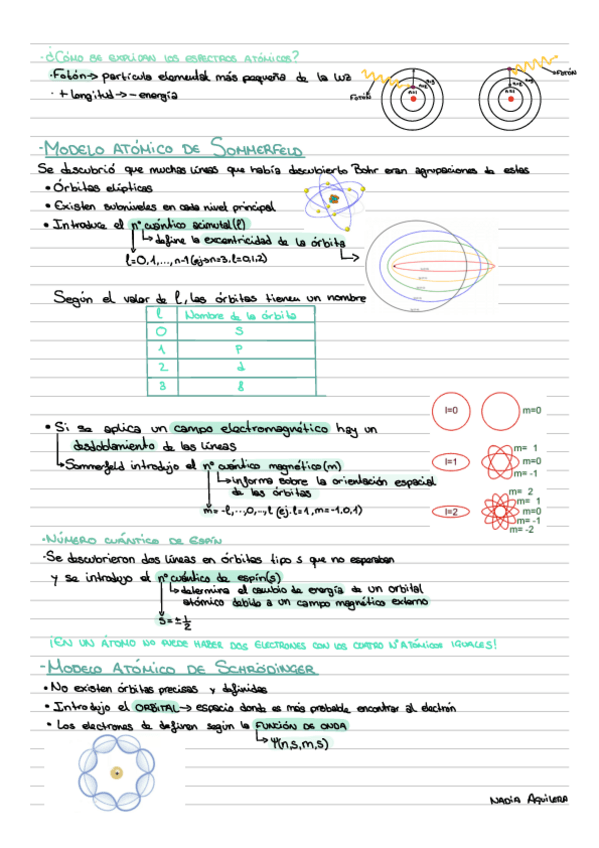 · ¿Cómo se explican los espectros atómicos?
· Fotón → partícula elemental más pequeña de la luz
· + longitud → - energía
FOTÓN
n=1
n=2
n=3
FOTÓN
n=1
n=2
n=3
- MODELO ATÓMICO DE SOMMERFELD
Se descubrió que muchas líneas que había descubierto Bohr eran agrupaciones de estas
• Órbitas elípticas
• Existen subniveles en cada nivel principal
• Introduce el nº cuántico azimutal (l)
↳ define la excentricidad de la órbita →
l=0,1,...,n-1 (ej→n=3, l=0,1,2)
Según el valor de l, las órbitas tienen un nombre
l Nombre de la órbita
0 s
1 p
2 d
3 f
• Si se aplica un campo electromagnético hay un
desdoblamiento de las líneas
↳ Sommerfeld introdujo el nº cuántico magnético (m)
↳ informa sobre la orientación espacial
de las órbitas
m = -l,...,0,...,l (ej. l=1, m=-1,0,1)
l=0 m=0
l=1
m= 1
m=0
m= -1
l=2
m= 2
m= 1
m=0
m= -1
m= -2
· NÚMERO CUÁNTICO DE ESPÍN
· Se descubrieron dos líneas en órbitas tipo s que no esperaban
y se introdujo el nº cuántico de espín (s)
↳ determina el cambio de energía de un orbital
atómico debido a un campo magnético externo
s = ± 1/2
¡EN UN ÁTOMO NO PUEDE HABER DOS ELECTRONES CON LOS CUATRO Nº ATÓMICOS IGUALES!
- MODELO ATÓMICO DE SCHRÖDINGER
• No existen órbitas precisas y definidas
• Introdujo el ORBITAL → espacio donde es más probable encontrar al electrón
• Los electrones de definen según la FUNCIÓN DE ONDA
↳ Ψ(n,s,m,s)
NADIA AGUILERA